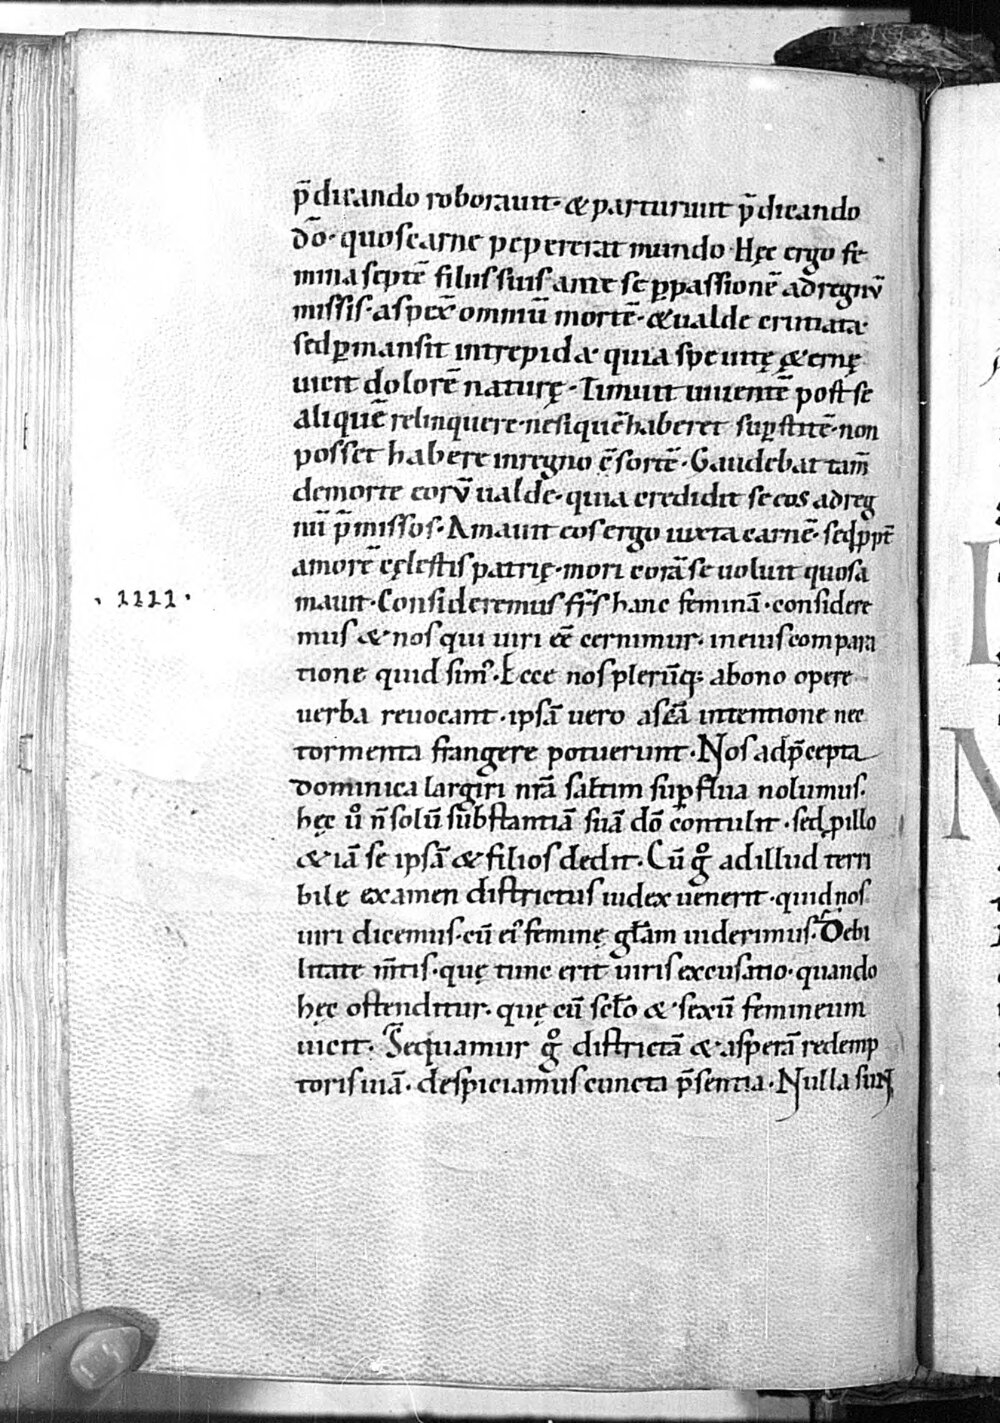 p̄dicando roborauit· & parturiuit p̄dicando
dō· quos carne pepererat mundo· Hęc ergo fe
mina septē filiis suis ante se ꝑ passionē ad regnū
missis· aspexē omniū mortē· & ualde cruciata·
sed ꝑmansit intrepida· quia spe uitę & ernę
uicit dolorē naturę· Timuit uiuentē post se
aliquē relinquere· ne si quē haberet suꝑstitē· non
posset habere in regno c̄sortē· Gaudebat tam̄
de morte eorū ualde· quia credidit se eos ad reg
nū p̄missos· Amauit eos ergo iuxta carnē· sed ꝓpt̄
amorē cęlestis patrię· mori corā se uoluit quos a
· IIII ·
mauit· Consideremus fr̄s hanc feminā· considere
mus & nos qui uiri eē cernimur· in eius compara
tione quid sim᷒· Ecce nos plerūq; a bono opere
uerba reuocant· ipsā uero a scā intentione nec
tormenta frangere potuerunt· Nos ad p̄cepta
dominica largiri nrā saltim suꝑflua nolumus·
hęc uͦ n̄ solū substantiā suā dō contulit· sed ꝓ illo
& iā se ipsā & filios dedit· Cū gͦ ad illud terri
bile examen districtus iudex uenerit· quid nos
uiri dicemus· cū ei᷒ feminę głam uiderimus· De debi
litate m̄tis· quę tunc erit uiris excusatio· quando
hęc ostenditur· quę cū scło & sexū femineum
uicit· Sequamur gͦ districtā & asperā redemp
toris uiā· despiciamus cuncta p̄sentia· Nulla sunt